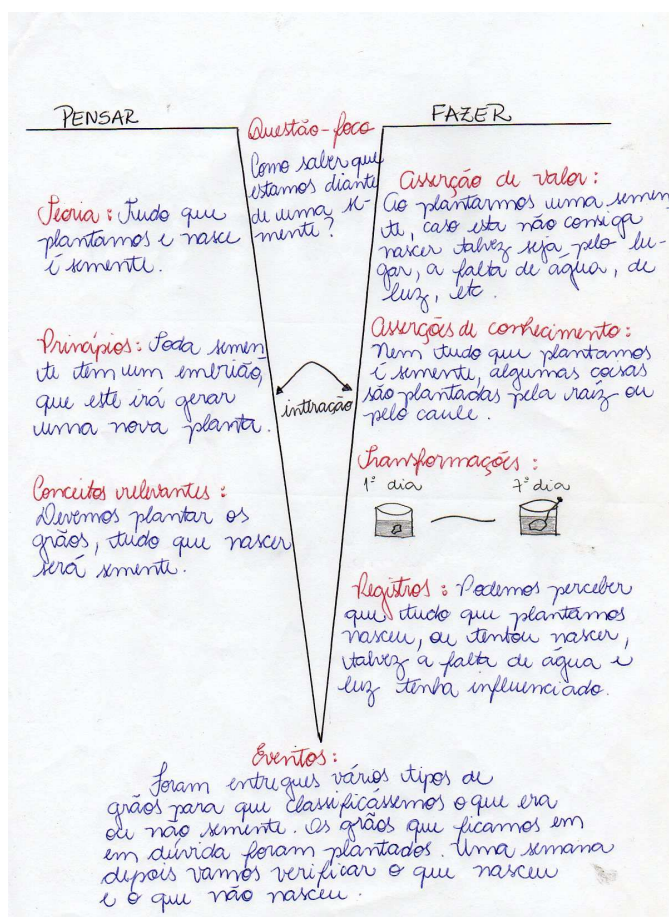 PENSAR
FAZER
Questão-foco
Como saber que
estamos diante
de uma se-
mente?
Teoria: Tudo que
plantamos e nasce
é semente.
Princípios: Toda semen
te tem um embrião,
que este irá gerar
uma nova planta.
Conceitos relevantes:
Devemos plantar os
grãos, tudo que nascer
será semente.
interação
Asserção de valor:
Ao plantarmos uma semen
te, caso esta não consiga
nascer talvez seja pelo lu-
gar, a falta de água, de
luz, etc.
Asserções de conhecimento:
Nem tudo que plantamos
é semente, algumas coisas
são plantadas pela raiz ou
pelo caule.
Transformações:
1º dia
7º dia
Registros: Podemos perceber
que tudo que plantamos
nasceu, ou tentou nascer,
talvez a falta de água e
luz tenha influenciado.
Eventos:
Foram entregues vários tipos de
grãos para que classificássemos o que era
ou não semente. Os grãos que ficamos em
em dúvida foram plantados. Uma semana
depois vamos verificar o que nasceu
e o que não nasceu.